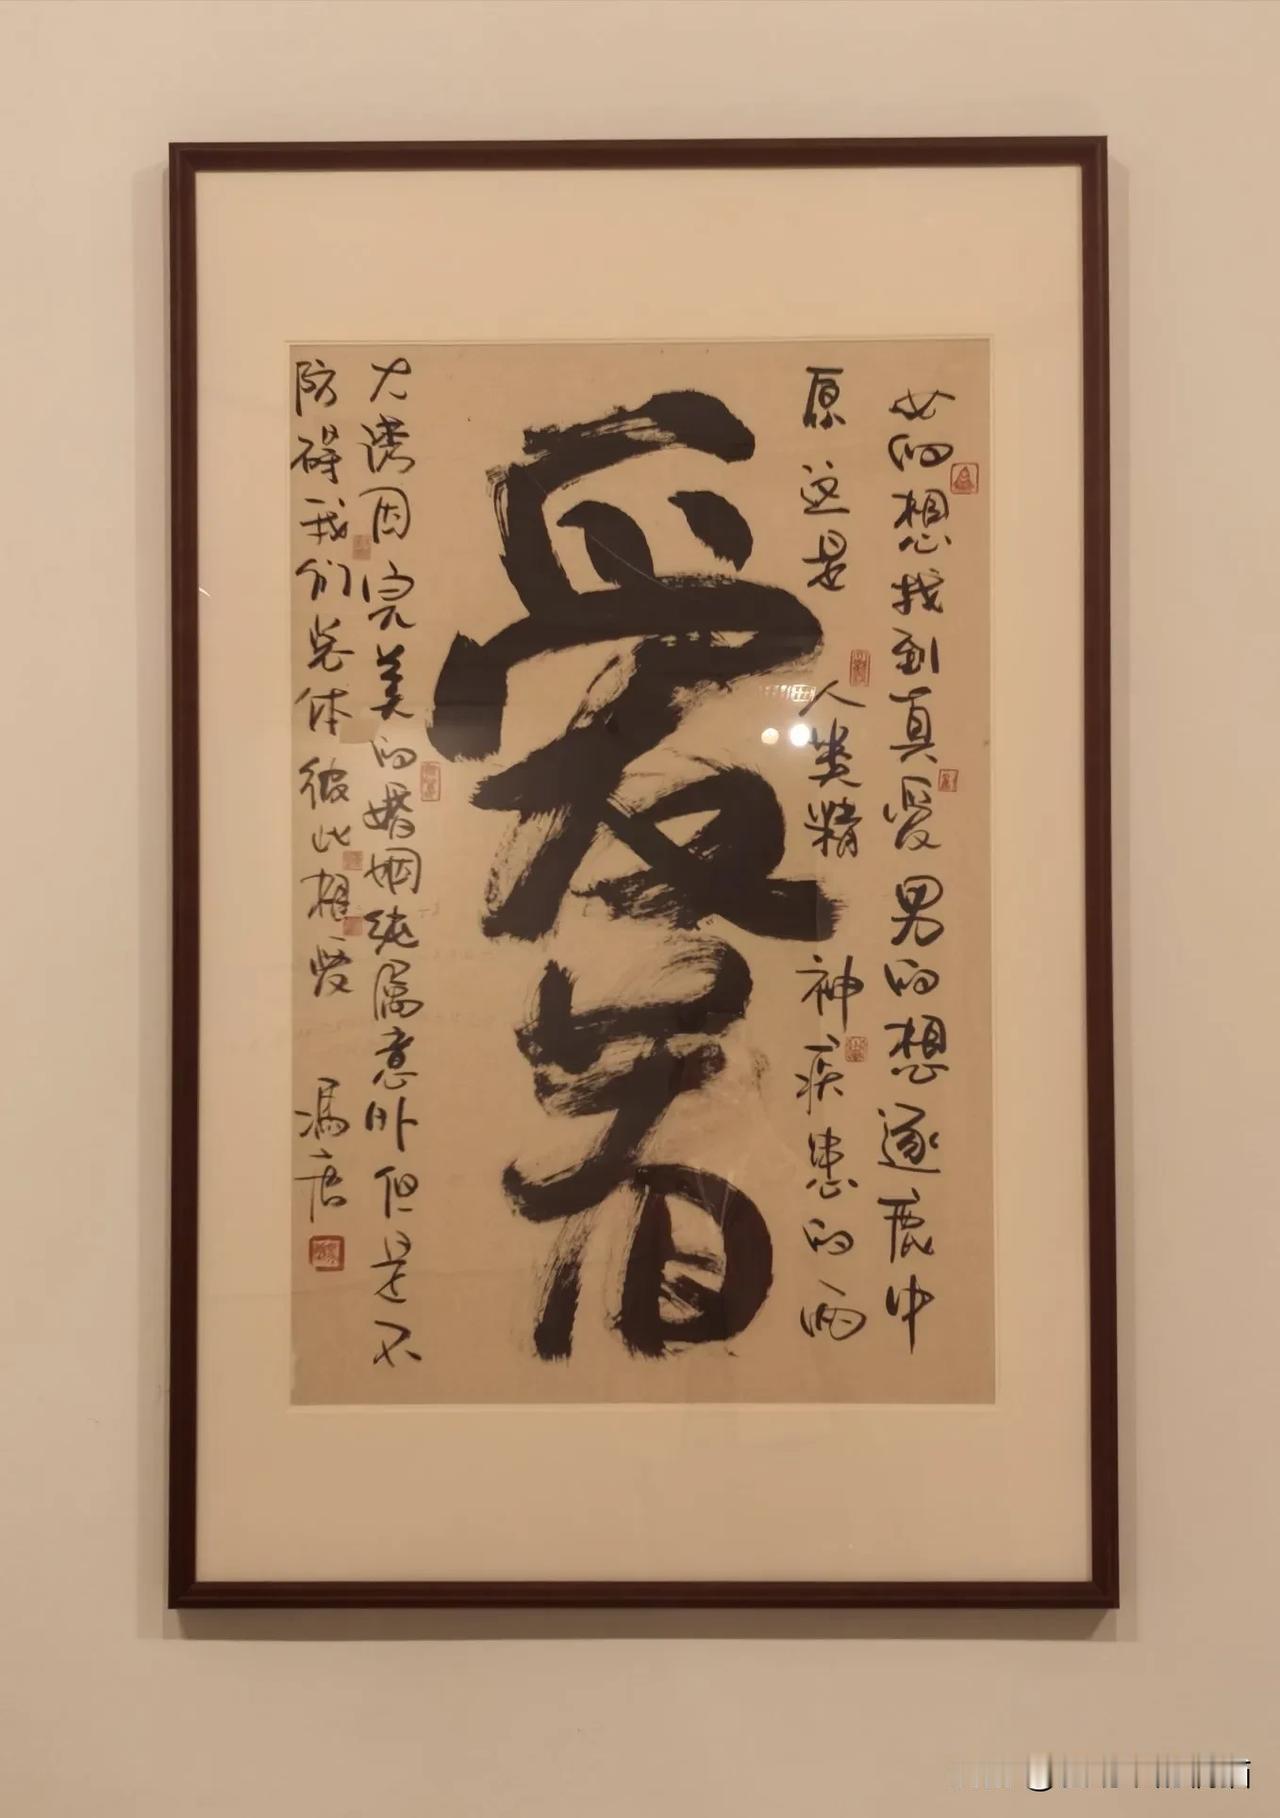 女的想找到真爱男的想逐鹿中
原这是人类精神疾患的两
爱着
大诱因完美的婚姻纯属意外但是不
防碍我们体彼此相爱 冯唐